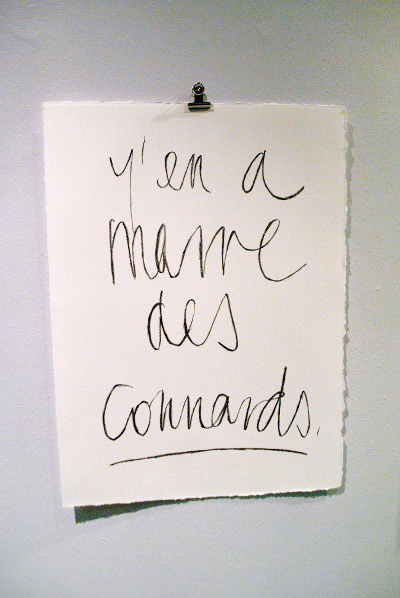 y'en a
marre
des
connards.